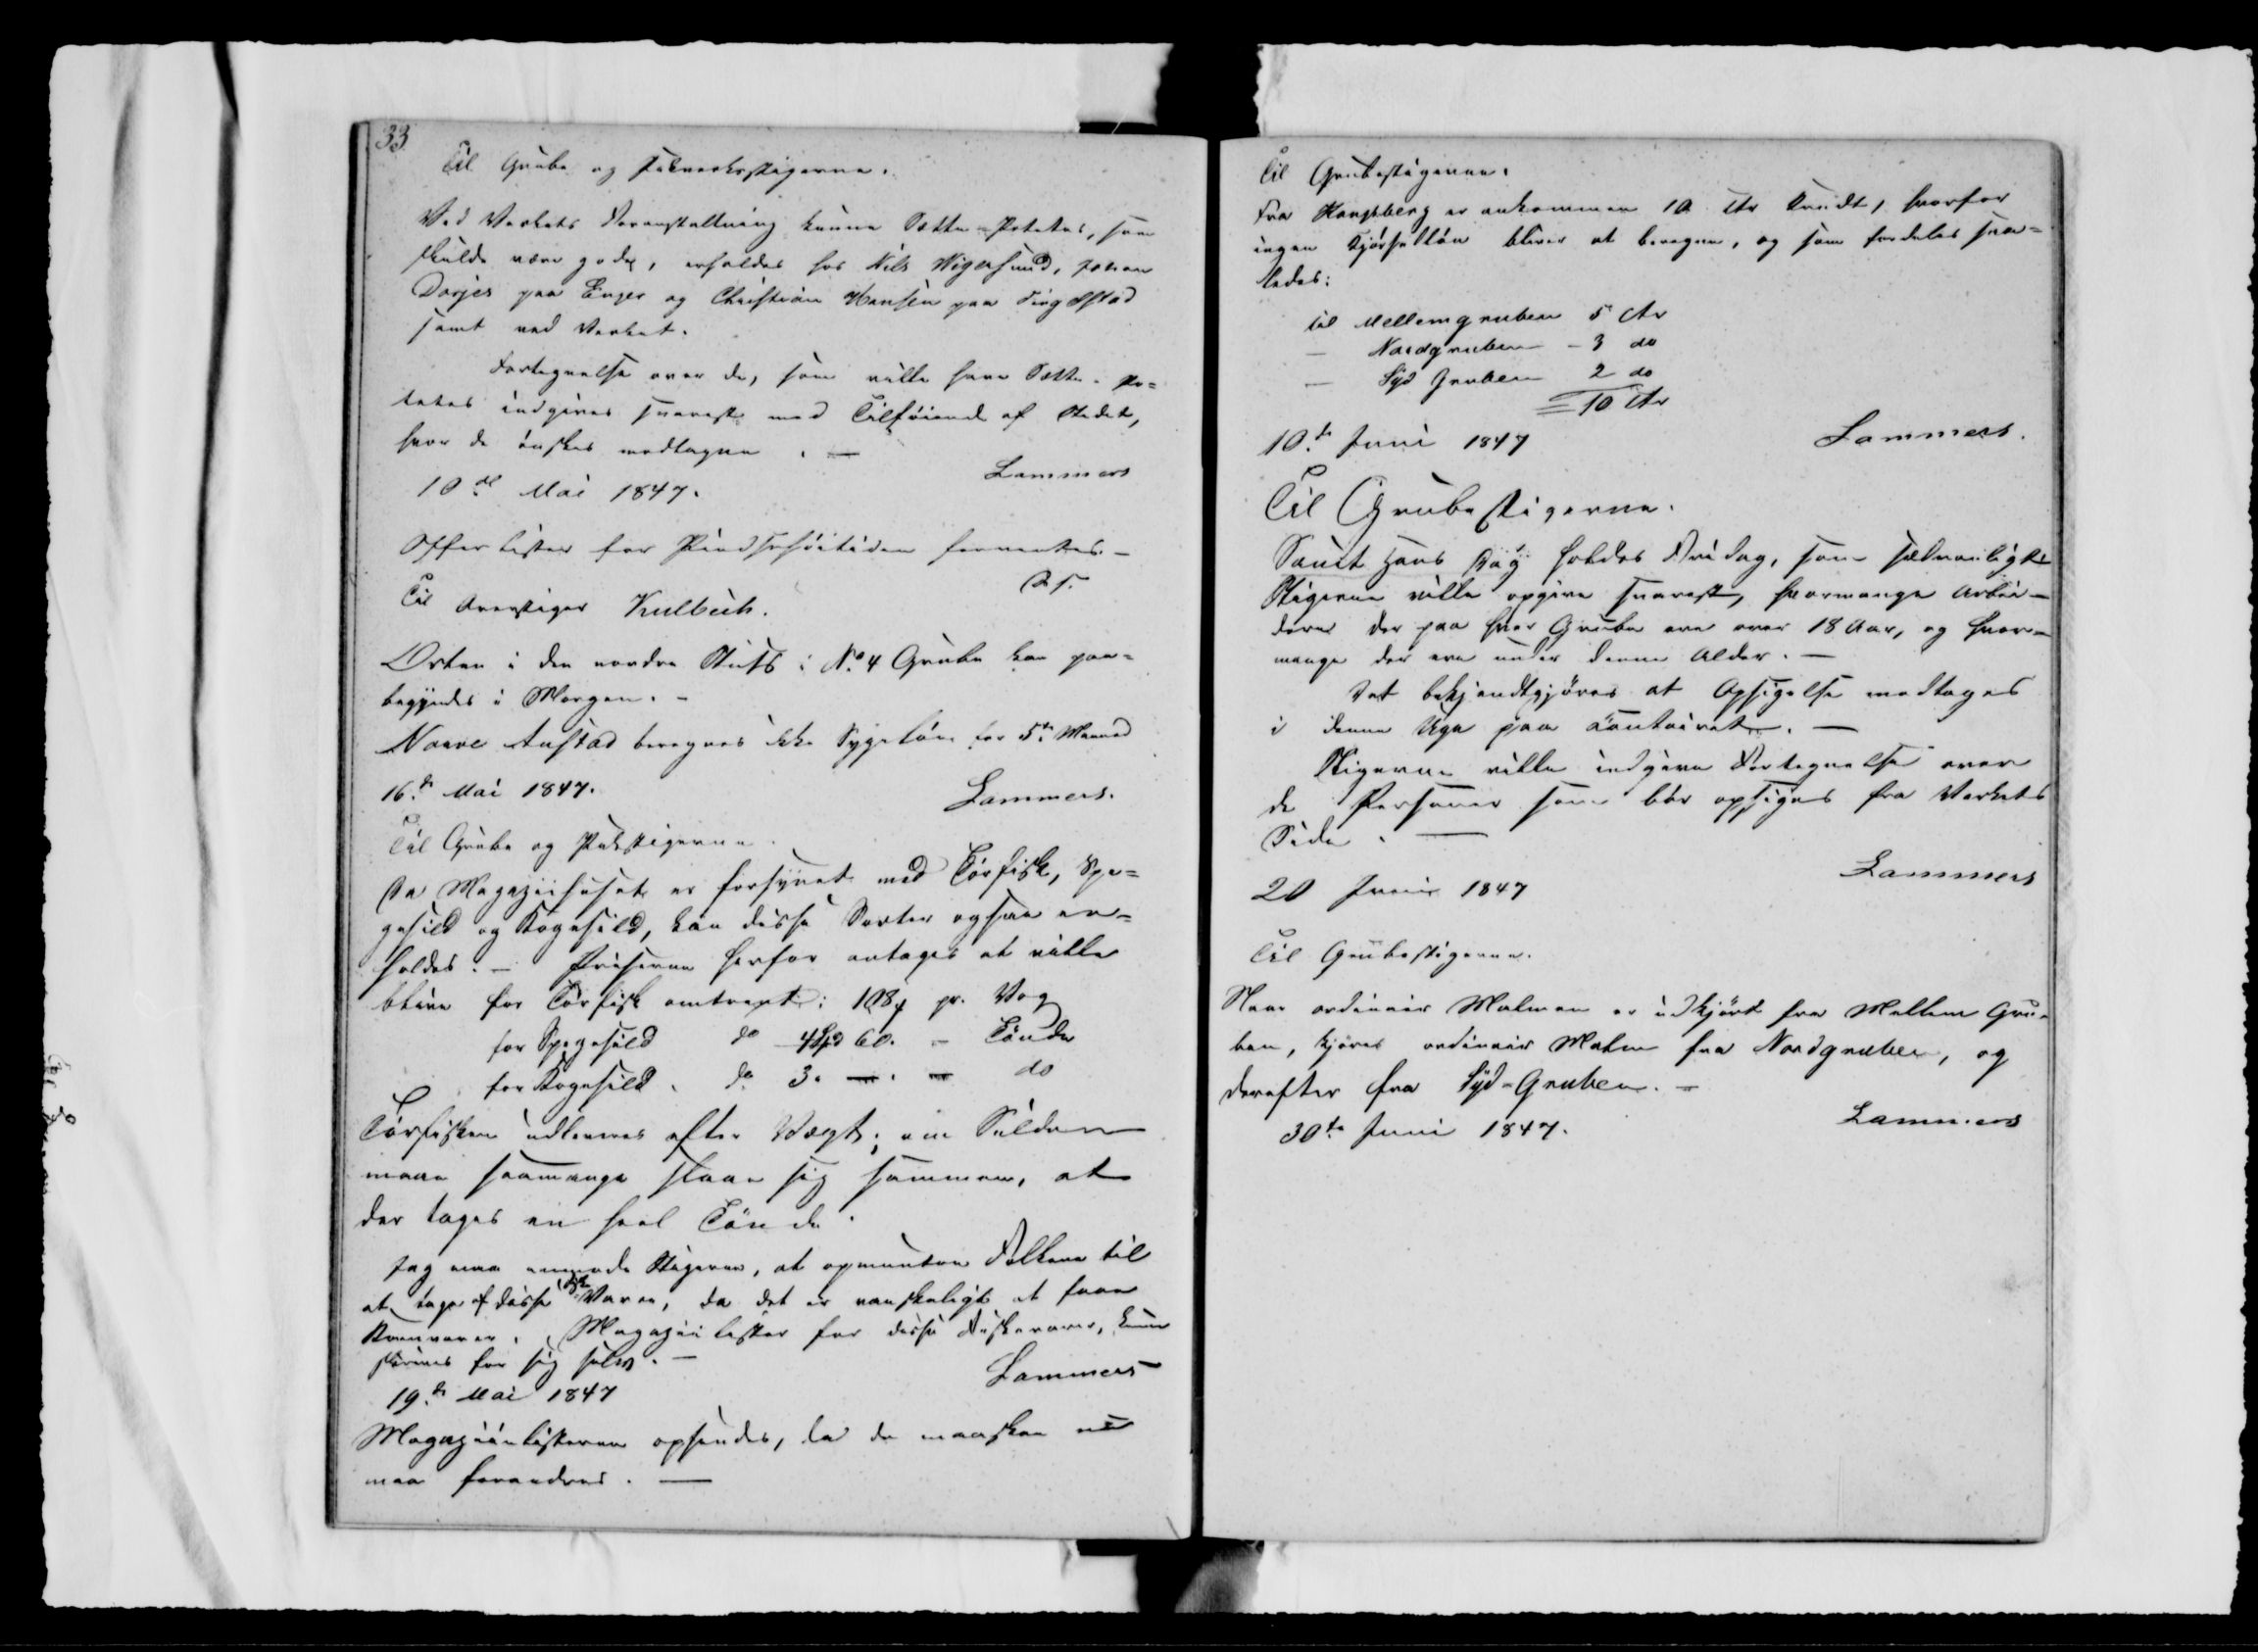 33
Til Grube og Pukverksstigerne.
Ved Verkets Foranstaltning kunne Sætte-Potetes, som
skulde være gode, erholdes hos Nils Wigersund, Johan
Dorjes paa Enger og Christian Hansen paa Tingelstad
samt ved Verket.
Fortegnelse over de, som ville have Sætte-Po=
tetes indgives snarest med Tilføiende af Stedet,
hvor de ønskes modtagne. —
10de Mai 1847.
Lammers
Offerlister for Pindsehøitiden forventes. —
Til Overstiger Kulbech.
Orten i den nordre Stuss i No 4 Grube kan paa=
begyndes i Morgen. —
Narve Aufstad beregnes ikke Sygeløn for 5te Maaned
16de Mai 1847.
Lammers.
Til Grube og Pukstigerne.
Da Magaziinhuset er forsynet med Tørfisk, Spe=
gesild og Kogesild, kan disse Sorter ogsaa er=
holdes. — Priserne herfor antages at ville
blive for Tørfisk omtrent: 108 ß pr. Vog
for Spegesild do 4 Spd 60. — Tønde
for Kogesild. do 3. — . — do
Tørfisken udleveres efter Vægt; om Silden
maa saamange slaae sig sammen, at
der tages en heel Tønde.
Jeg maa anmode Stigerne, at opmuntre Folkene til
at tage af disse Varer, da det er vanskeligt at faae
Kornvarer. Magaziinlister for disse Fiskevarer, kunne
skrives for sig selv. —
19de Mai 1847
Lammers
Magaziinlisterne opsendes, da de maaskee nu
maa forandres. —
Til Grubestigerne.
Fra Kongsberg er ankommen 10 Ctr Krudt, hvorfor
ingen Kjørselløn bliver at beregne, og som fordeles saa=
ledes:
Til Mellemgruben 5 Ctr
— Nordgruben — 3 do
— Syd Gruben 2 do
= 10 Ctr
10de Juni 1847
Lammers.
Til Grubestigerne.
Sanct Hans Dag holdes Fridag, som sædvanligt
Stigerne ville opgive snarest, hvormange Arbei=
dere der paa hver Grube ere over 18 Aar, og hvor=
mange der ere under denne Alder. —
Det bekjendtgjøres at Opsigelse modtages
i denne Uge paa Contoiret. —
Stigerne ville indgive Fortegnelse over
de Personer som bør opsiges fra Verkets
Side. —
20 Juni 1847
Lammers
Til Grubestigerne.
Naar ordinair Malmen er udkjørt fra Mellem Gru=
ben, kjøres ordinair Malm fra Nordgruben, og
derefter fra Syd-Gruben. —
30te Juni 1847.
Lammers